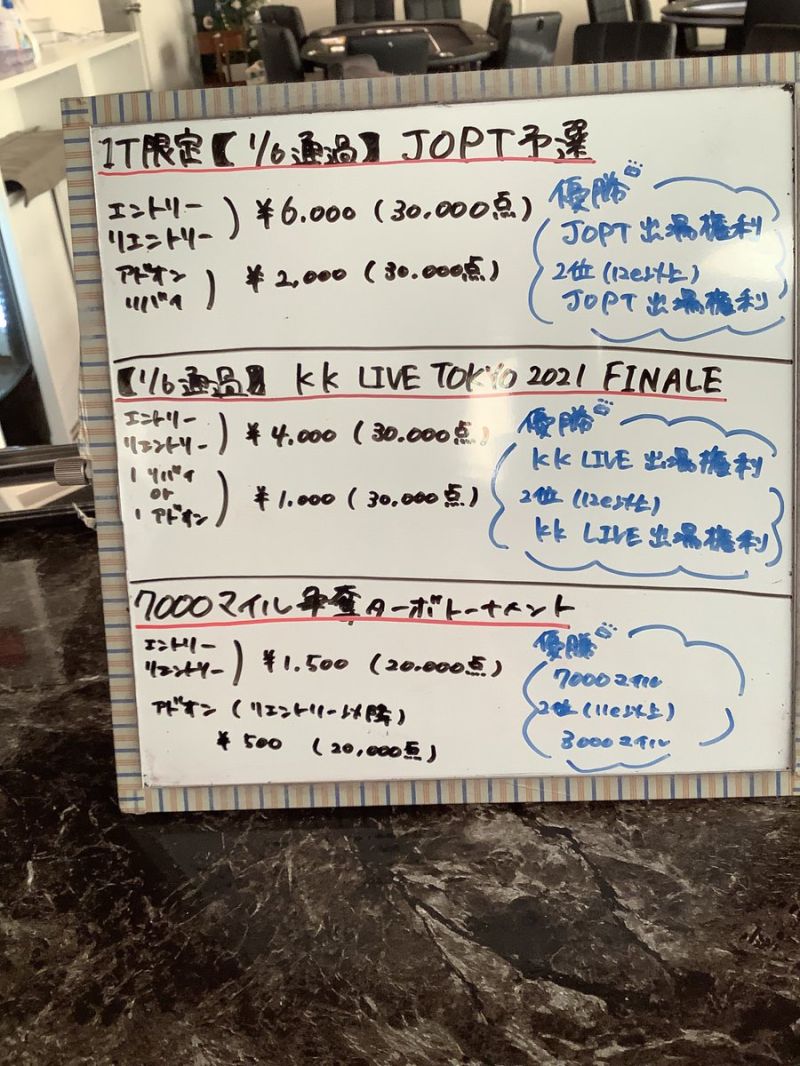 1T限定【1/6通過】JOPT予選
エントリー
リエントリー
¥6.000 (30.000点)
アドオン
リバイ
¥2,000 (30.000点)
優勝
JOPT出場権利
2位(12e以上)
JOPT出場権利
【1/6通過】 KK LIVE TOKYO 2021 FINALE
エントリー
リエントリー
¥4.000 (30.000点)
1リバイ
or
1アドオン
¥1.000 (30,000点)
優勝
KK LIVE 出場権利
2位(12e以上)
KK LIVE 出場権利
7000マイル争奪ターボトーナメント
エントリー
リエントリー
¥1.500 (20.000点)
アドオン(リエントリー以降)
¥500 (20,000点)
優勝
7000マイル
2位(11e以上)
3000マイル